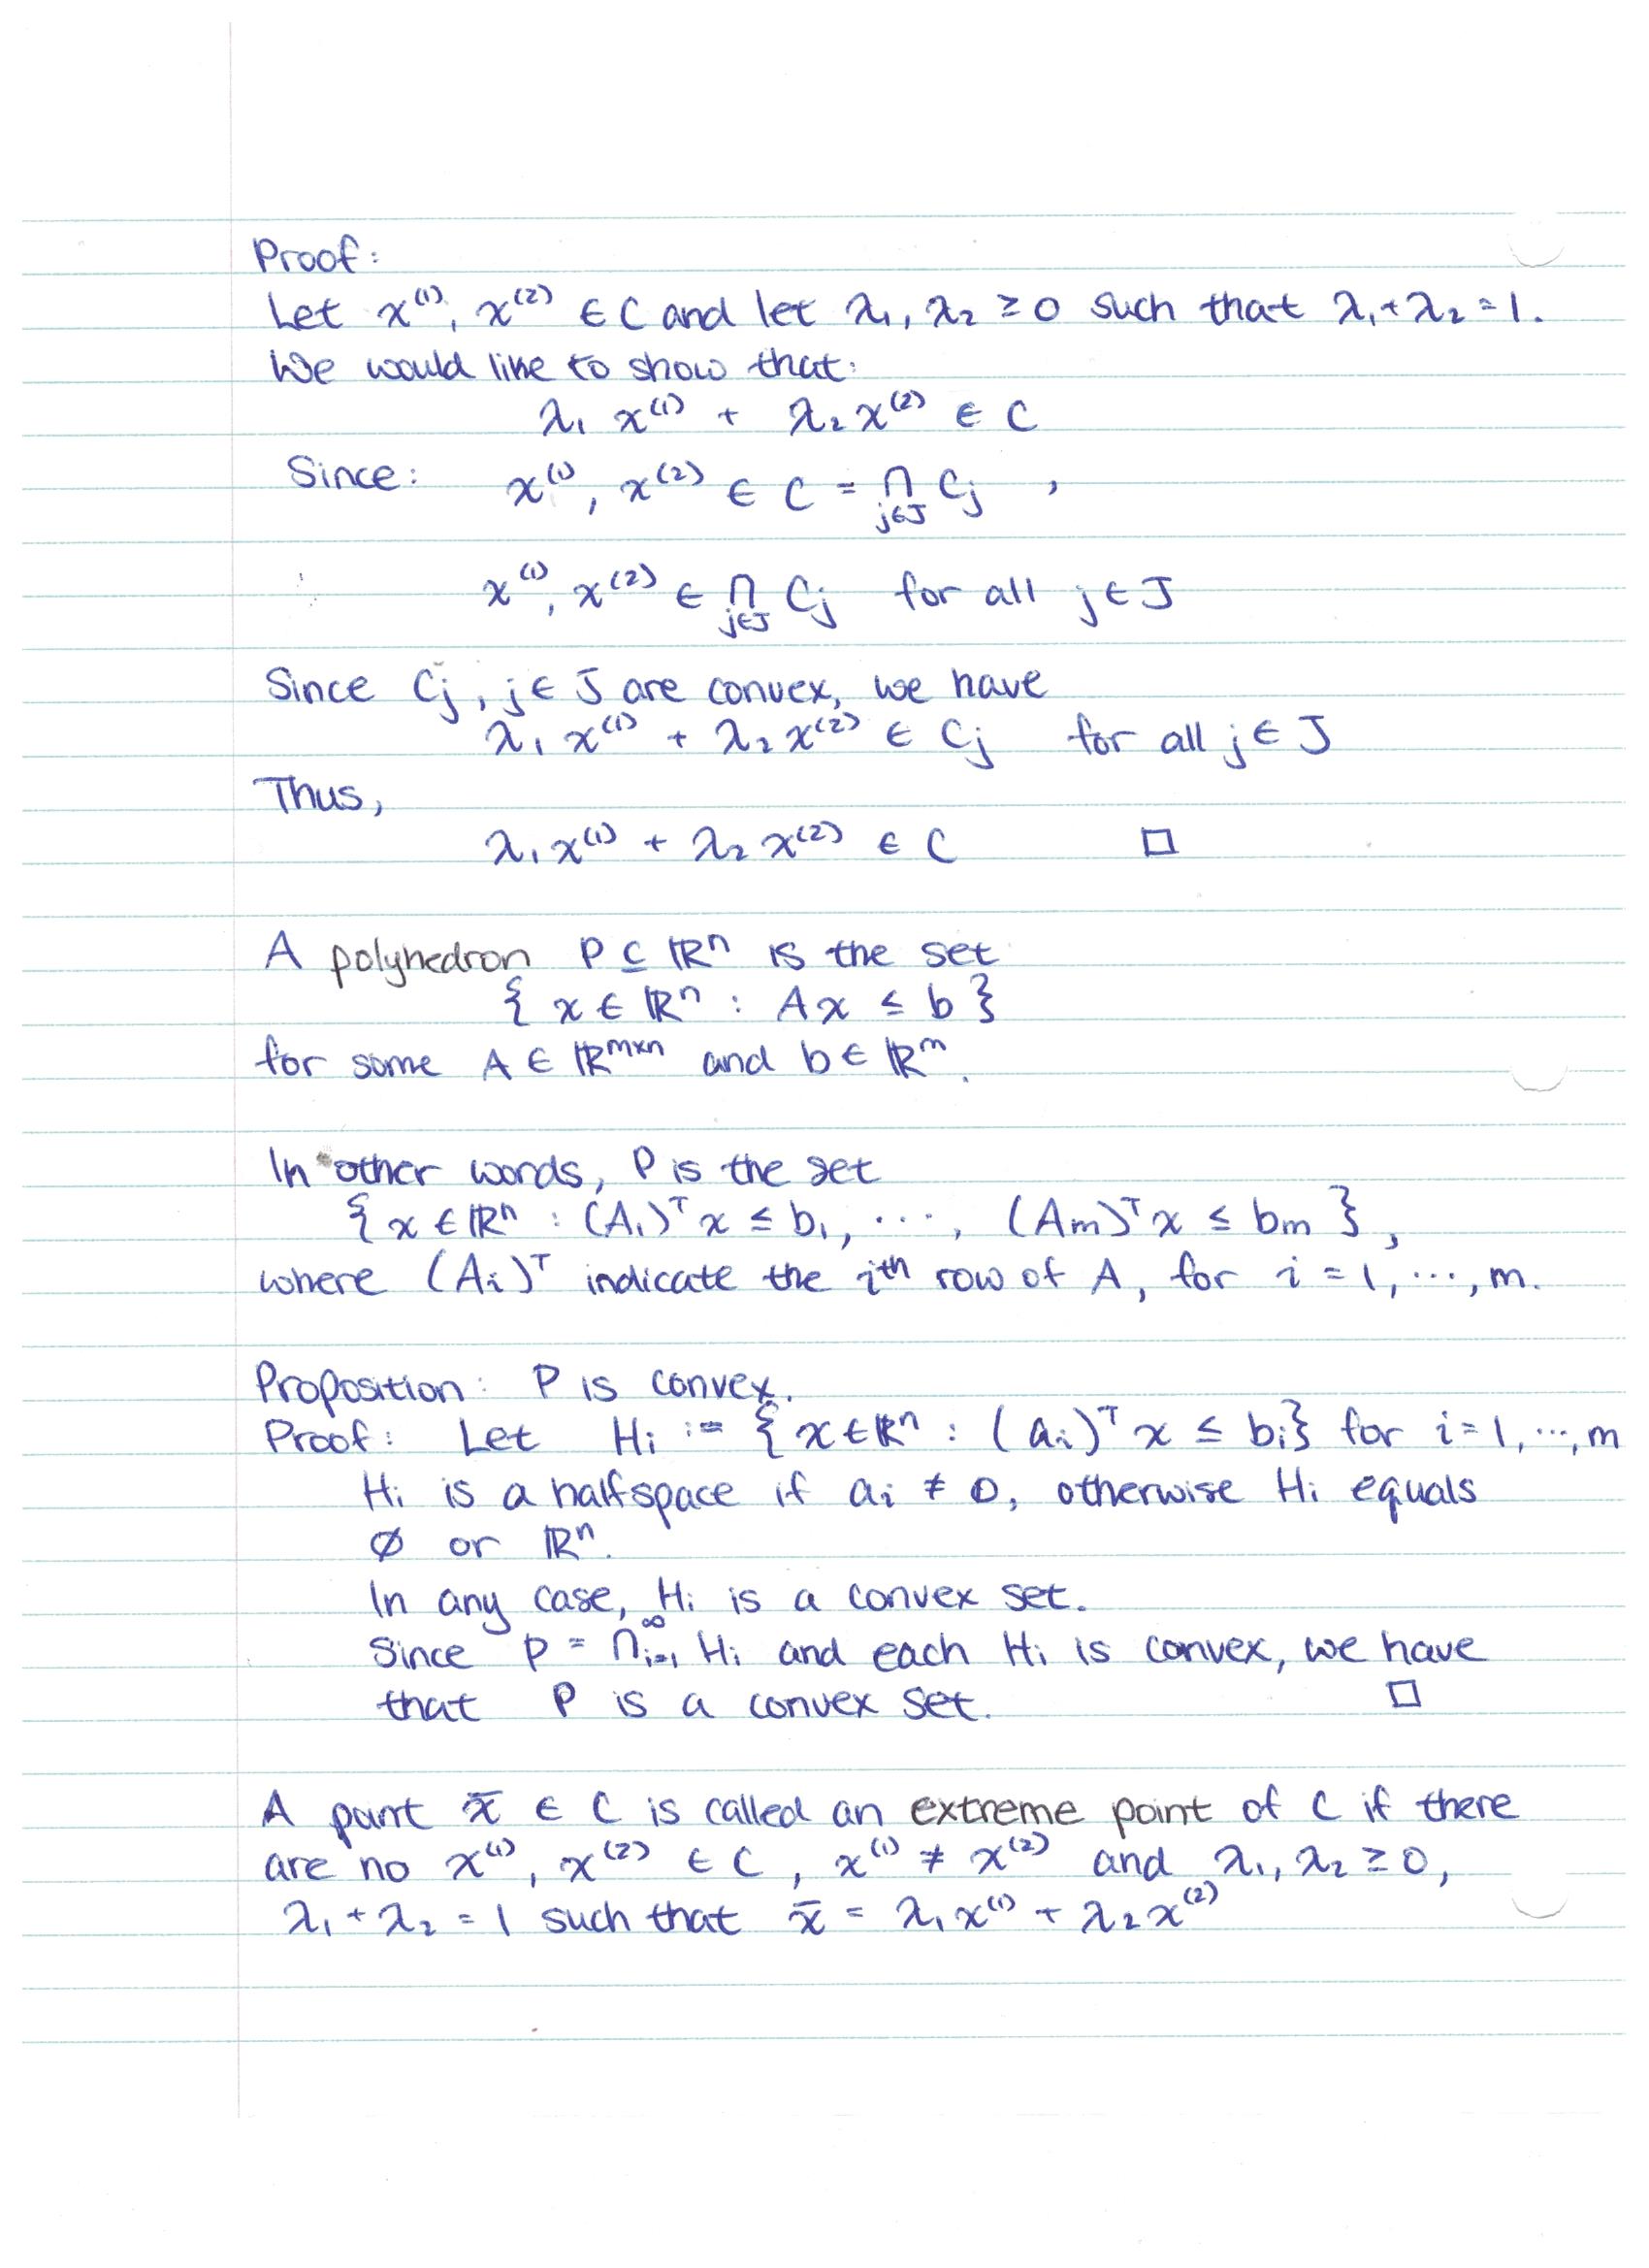 Proof:
Let x⁽¹⁾, x⁽²⁾ ∈ C and let λ₁, λ₂ ≥ 0 such that λ₁+λ₂ = 1.
We would like to show that:
λ₁ x⁽¹⁾ + λ₂ x⁽²⁾ ∈ C
Since: x⁽¹⁾, x⁽²⁾ ∈ C = ∩_{j∈J} Cⱼ ,
x⁽¹⁾, x⁽²⁾ ∈ ∩_{j∈J} Cⱼ for all j ∈ J
Since Cⱼ, j ∈ J are convex, we have
λ₁ x⁽¹⁾ + λ₂ x⁽²⁾ ∈ Cⱼ for all j ∈ J
Thus,
λ₁ x⁽¹⁾ + λ₂ x⁽²⁾ ∈ C □
A polyhedron P ⊆ ℝⁿ is the set
{ x ∈ ℝⁿ : Ax ≤ b }
for some A ∈ ℝᵐˣⁿ and b ∈ ℝᵐ.
In other words, P is the set
{ x ∈ ℝⁿ : (A₁)ᵀ x ≤ b₁, ..., (Aₘ)ᵀ x ≤ bₘ },
where (Aᵢ)ᵀ indicate the iᵗʰ row of A, for i = 1, ..., m.
Proposition: P is convex.
Proof: Let Hᵢ := { x ∈ ℝⁿ : (aᵢ)ᵀ x ≤ bᵢ} for i = 1, ..., m
Hᵢ is a halfspace if aᵢ ≠ 0, otherwise Hᵢ equals
∅ or ℝⁿ.
In any case, Hᵢ is a convex set.
Since P = ∩_{i=1}^∞ Hᵢ and each Hᵢ is convex, we have
that P is a convex set. □
A point x̄ ∈ C is called an extreme point of C if there
are no x⁽¹⁾, x⁽²⁾ ∈ C, x⁽¹⁾ ≠ x⁽²⁾ and λ₁, λ₂ ≥ 0,
λ₁ + λ₂ = 1 such that x̄ = λ₁ x⁽¹⁾ + λ₂ x⁽²⁾